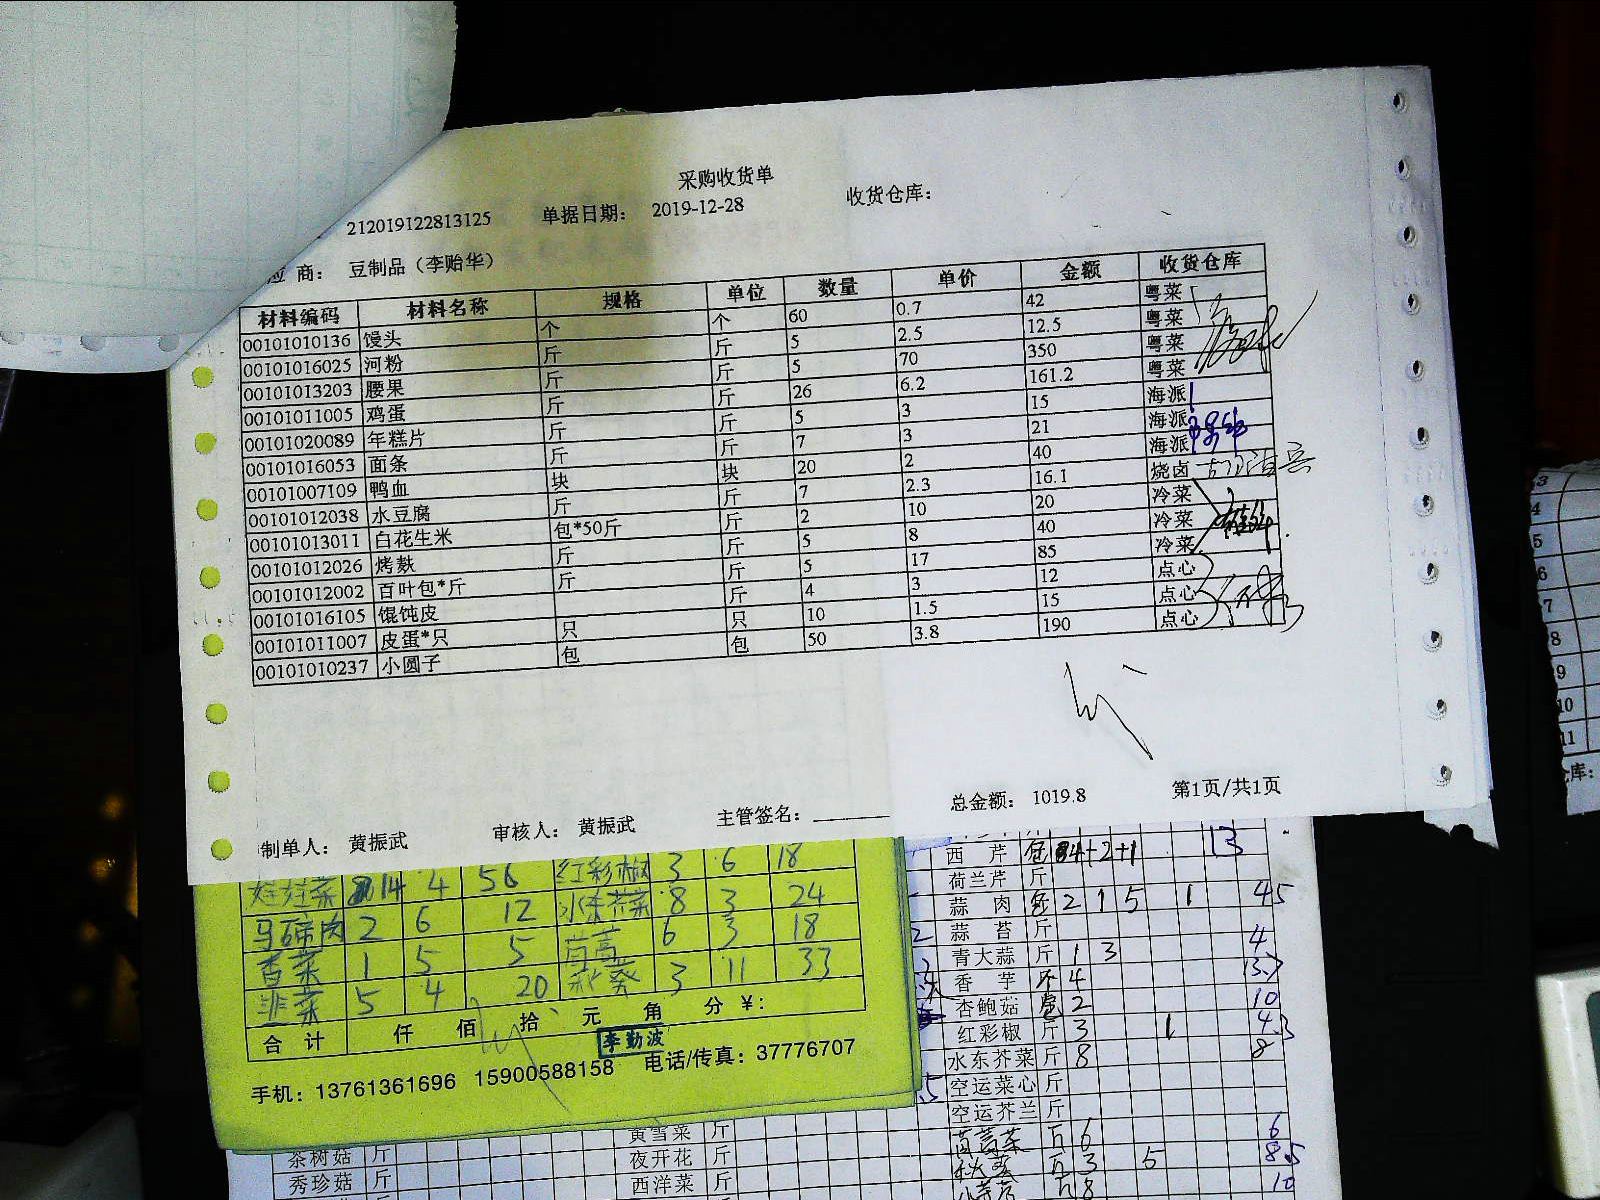 采购收货单
212019122813125 单据日期： 2019-12-28 收货仓库：
应 商： 豆制品（李贻华）
材料编码 材料名称 规格 单位 数量 单价 金额 收货仓库
00101010136 馒头 个 个 60 0.7 42 粤菜
00101016025 河粉 斤 斤 5 2.5 12.5 粤菜
00101013203 腰果 斤 斤 5 70 350 粤菜
00101011005 鸡蛋 斤 斤 26 6.2 161.2 粤菜
00101020089 年糕片 斤 斤 5 3 15 海派
00101016053 面条 斤 斤 7 3 21 海派
00101007109 鸭血 块 块 20 2 40 海派
00101012038 水豆腐 斤 斤 7 2.3 16.1 烧卤
00101013011 白花生米 包*50斤 斤 2 10 20 冷菜
00101012026 烤麸 斤 斤 5 8 40 冷菜
00101012002 百叶包*斤 斤 斤 5 17 85 冷菜
00101016105 馄饨皮 斤 4 3 12 点心
00101011007 皮蛋*只 只 只 10 1.5 15 点心
00101010237 小圆子 包 包 50 3.8 190 点心
总金额： 1019.8 第1页/共1页
制单人： 黄振武 审核人： 黄振武 主管签名：
娃娃菜 14 4 56 红彩椒 3 6 18
马蹄肉 2 6 12 水东芥菜 8 3 24
香菜 1 5 5 茼蒿 6 3 18
韭菜 5 4 20 秋葵 3 11 33
合计 仟 佰 拾 元 角 分 ¥:
李勤波
手机：13761361696 15900588158 电话/传真：37776707
西芹 4+2+1 13
荷兰芹 斤
蒜肉 2 1 5 1 45
蒜苔 斤 4
青大蒜 斤 1 3
香芋 4
杏鲍菇 2 10
红彩椒 斤 3 1
水东芥菜 斤 8 8
空运菜心 斤
空运芥兰 斤
茼蒿菜 斤 6 6
秋葵 斤 3 5
黄雪菜 斤
茶树菇 斤 夜开花 斤
秀珍菇 斤 西洋菜 斤
3
4
5
6
7
8
9
10
11
仓库：